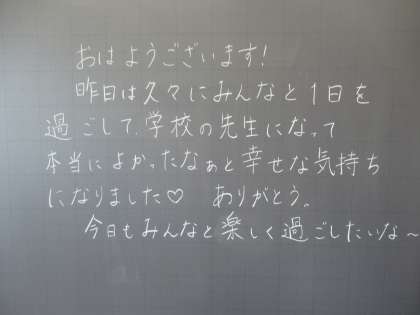 おはようございます!
昨日は久々にみんなと1日を
過ごして、学校の先生になって
本当によかったなぁと幸せな気持ち
になりました♡ ありがとう。
今日もみんなと楽しく過ごしたいな～